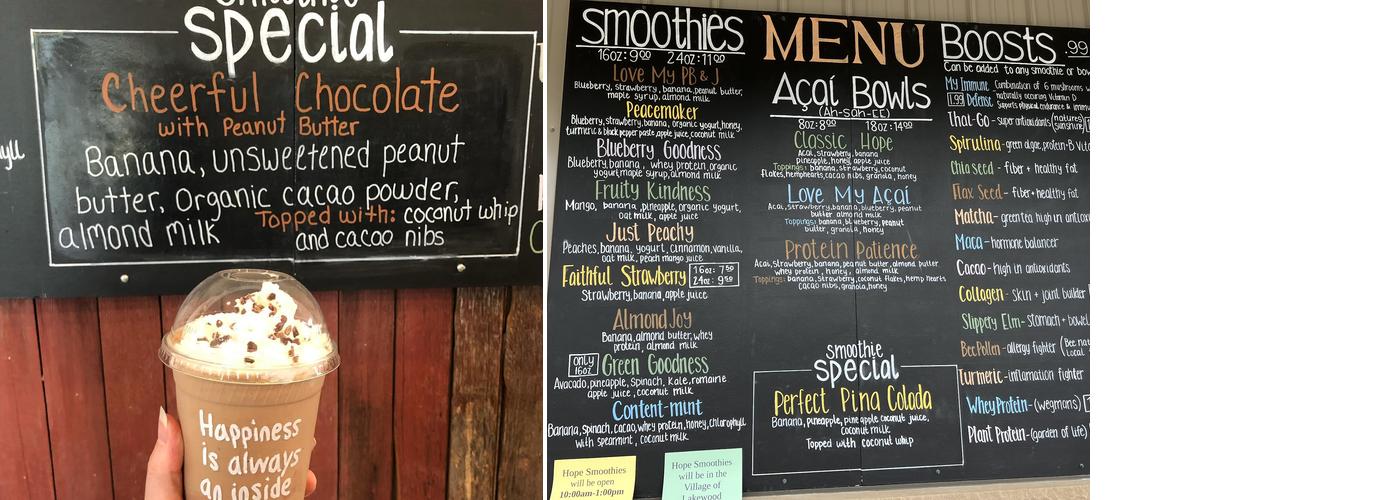 special
Cheerful Chocolate
with Peanut Butter
Banana, unsweetened peanut
butter, Organic cacao powder,
almond milk
Topped with: coconut whip
and cacao nibs
Happiness
is always
an inside
smoothies
16oz: 9.00 24oz: 11.00
Love My PB & J
Blueberry, strawberry, banana, peanut butter,
maple syrup, almond milk
Peacemaker
Blueberry, strawberry, banana, organic yogurt, honey,
turmeric & black pepper paste, apple juice, coconut milk
Blueberry Goodness
Blueberry, banana, whey protein, organic
yogurt, maple syrup, almond milk
Fruity Kindness
Mango, banana, pineapple, organic yogurt,
oat milk, apple juice
Just Peachy
Peaches, banana, yogurt, cinnamon, vanilla,
oat milk, peach mango juice
Faithful Strawberry 16oz: 7.50
24oz: 9.50
Strawberry, banana, apple juice
Almond Joy
Banana, almond butter, whey
protein, almond milk
only
16oz
Green Goodness
Avocado, pineapple, spinach, kale, romaine
apple juice, coconut milk
Content-mint
Banana, spinach, cacao, whey protein, honey, chlorophyll
with spearmint, coconut milk
Hope Smoothies
will be open
10:00am-1:00pm
Hope Smoothies
will be in the
Village of
Lakewood
MENU
Açaí Bowls
(Ah-sah-EE)
8oz: 8.00 18oz: 14.00
Classic Hope
Acai, strawberry, banana
pineapple, honey, apple juice
Toppings: banana, strawberry, coconut
flakes, hemphearts, cacao nibs, granola, honey
Love My Açaí
Acai, strawberry, blueberry, peanut
butter almond milk
Toppings: banana, blueberry, peanut
butter, granola, honey
Protein Patience
Acai, strawberry, banana, peanut butter, almond butter
whey protein, honey, almond milk
Toppings: banana, strawberry, coconut flakes, hemp hearts
cacao nibs, granola, honey
smoothie
special
Perfect Pina Colada
Banana, pineapple, pineapple coconut juice,
coconut milk
Topped with coconut whip
Boosts .99
Can be added to any smoothie or bow
My Immune
1.99 Defense
Combination of 6 mushrooms
naturally occuring Vitamin D
Supports physical endurance & immun
Thai-Go - super antioxidants (natures sunshine)
Spirulina - green algae, protein-B Vita
Chia seed - fiber + healthy fat
Flax Seed - fiber + healthy fat
Matcha - green tea high in antiox
Maca - hormone balancer
Cacao - high in antioxidants
Collagen - skin + joint builder
Slippery Elm - stomach + bowel
Bee Pollen - allergy fighter
Turmeric - inflamation fighter
Whey Protein - (wegmans)
Plant Protein - (garden of life)